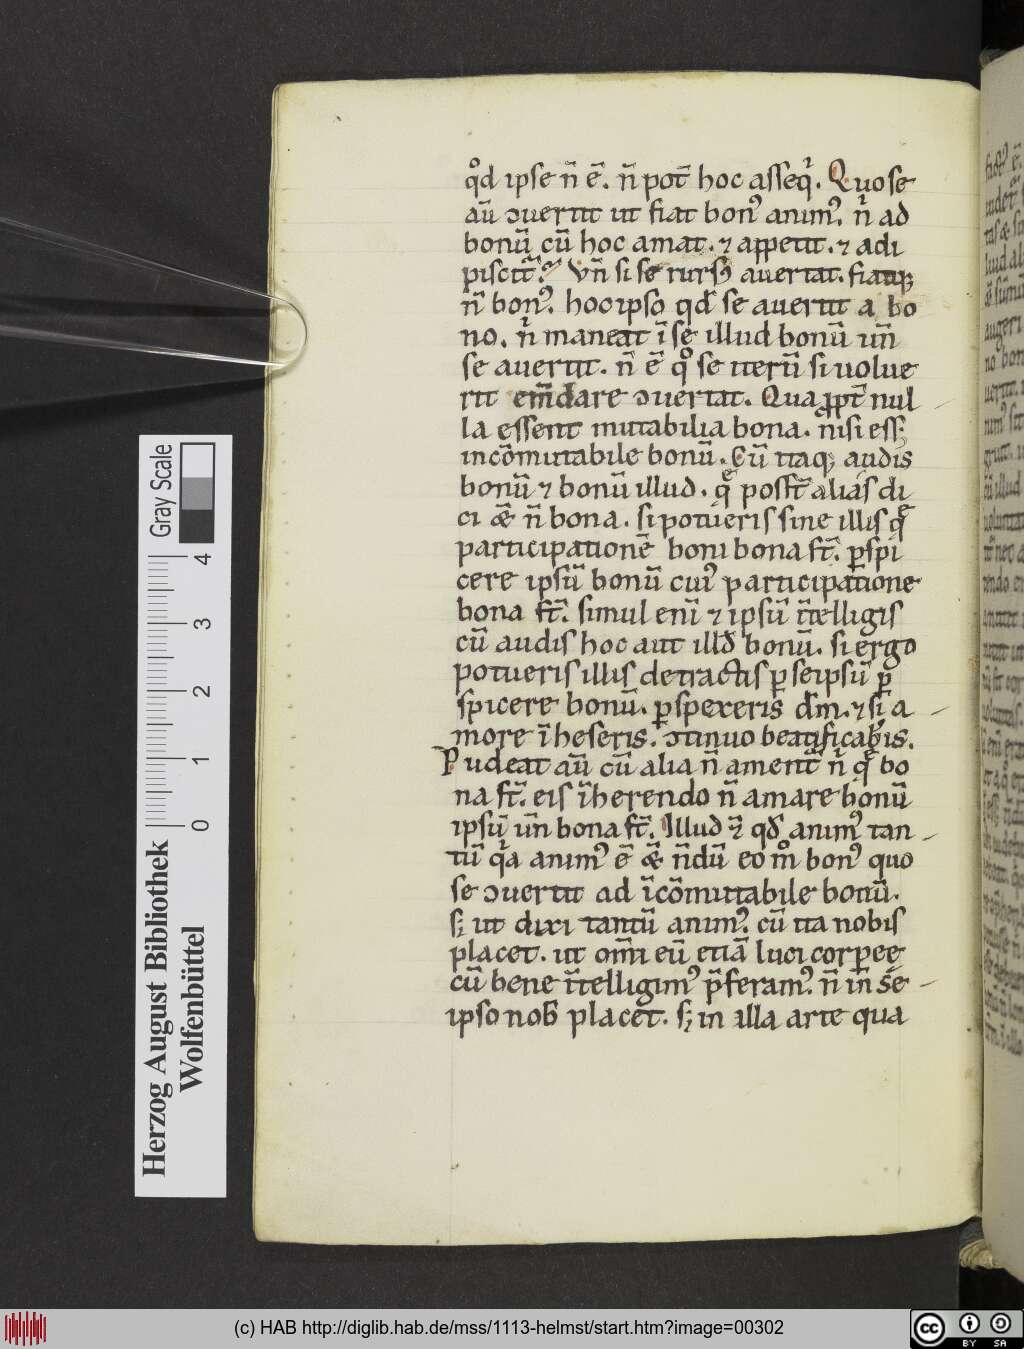 qͦd ipse n̄ ē. n̄ pot̄ hoc asseqͥ. Quo se
aū ↄuertit ut fiat bonꝰ animꝰ. nͥ ad
bonū cū hoc amat. ⁊ appetit. ⁊ adi
piscit᷑? Vn̄ si se rursꝰ auertat. fiatqꝫ
n̄ bonꝰ. hoc ipso qđ se auertit a bo
no. nͥ maneat ī se illud bonū un̄
se auertit. n̄ ē qͦ se iterū si uolue
rit em̄dare ↄuertat. Quapropt̄ nul
la essent mutabilia bona. nisi eēt
incōmutabile bonū. Cū itaqꝫ audis
bonū ⁊ bonū illud. q̨ post̄ alias di
ci & n̄ bona. si potueris sine illis q̨
participationē boni bona st̄. ꝑspi
cere ipsū bonū cuiꝰ participatione
bona st̄. simul enī ⁊ ipsū ītelligis
cū audis hoc aut illđ bonū. si ergo
potueris illis detractis ꝑ seipsū ꝑ
spicere bonū. ꝑspexeris dm̄. ⁊ si a
more īheseris. ↄtinuo beatificab̄is.
Pudeat aū cū alia n̄ ament᷑ nͥ q̨ bo
na st̄. eis īherendo n̄ amare bonū
ipsū un̄ bona st̄. Illud ⁊̄ qđ animꝰ tan
tū qͥa animꝰ ē & n̄dū eo mͦ bonꝰ quo
se ↄuertit ad īcōmutabile bonū.
sꝫ ut dixi tantū animꝰ. cū ita nobis
placet. ut om̄i eū etiā luci corpeę
cū bene ītelligimꝰ p̄feramꝰ. n̄ in se
ipso nob̄ placet. sꝫ in illa arte qua
Gray Scale
0 1 2 3 4
Herzog August Bibliothek
Wolfenbüttel
(c) HAB http://diglib.hab.de/mss/1113-helmst/start.htm?image=00302
cc BY SA